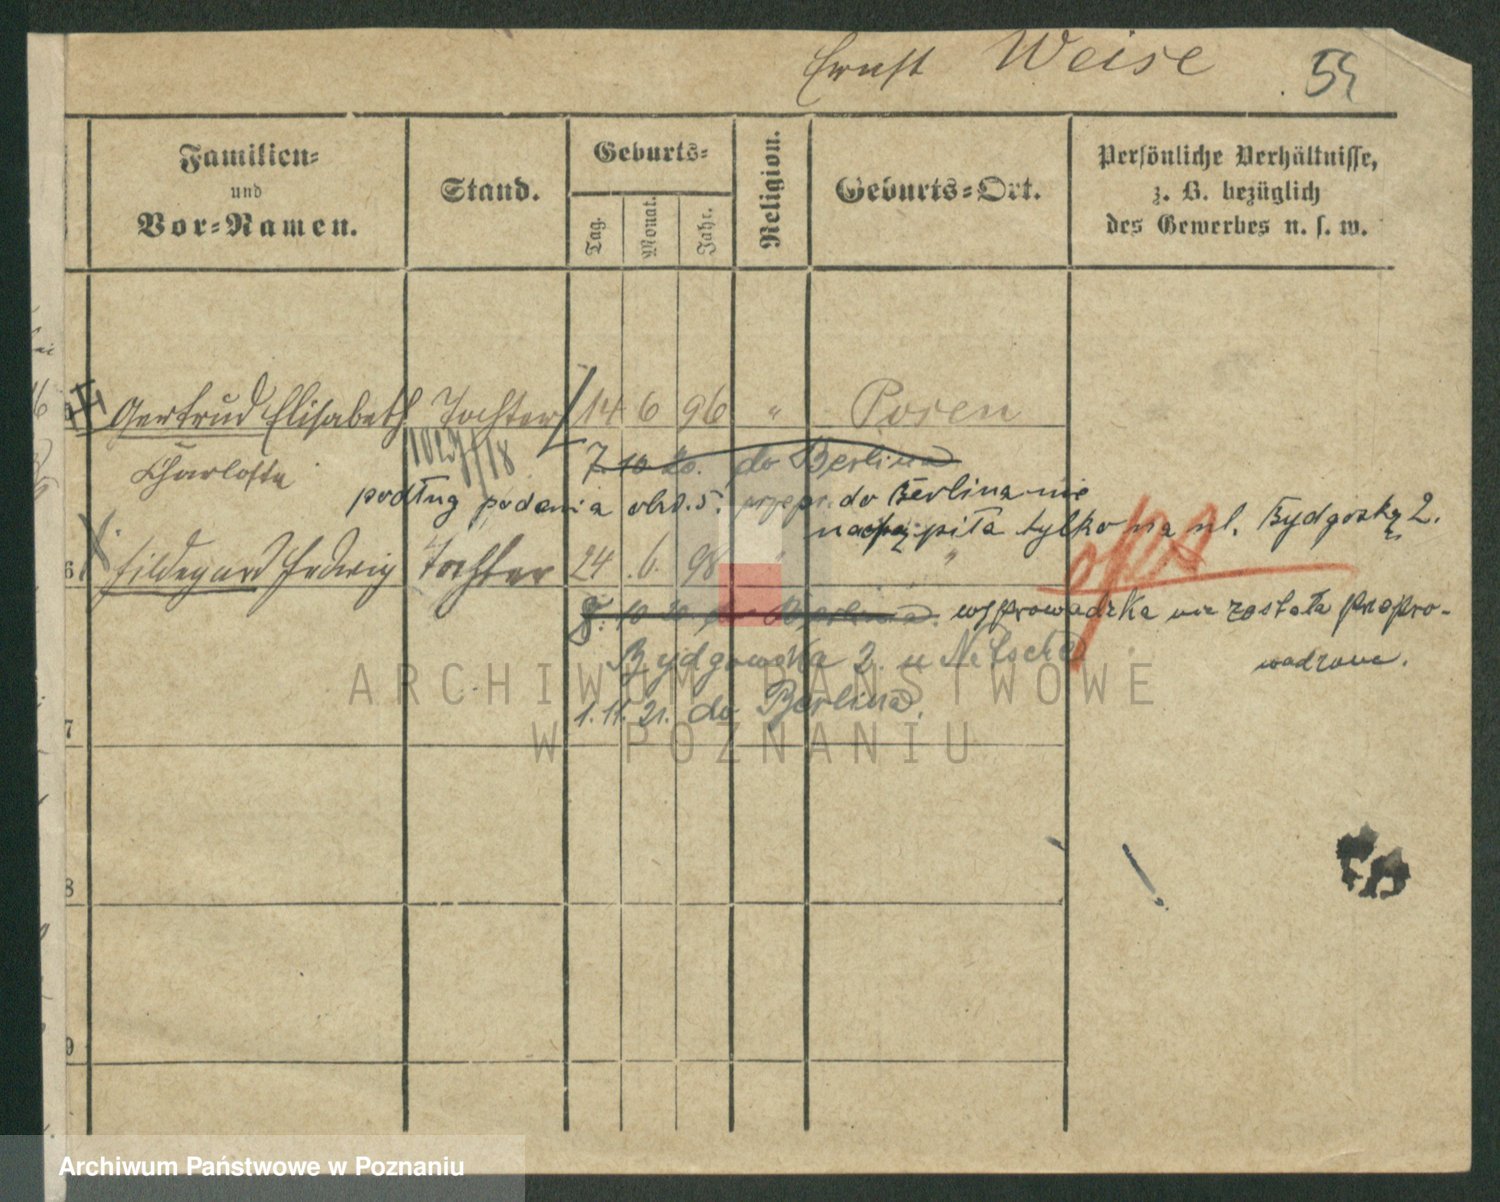 Ernst Weise 54
Familien=
und
Vor=Namen.
Stand.
Geburts=
Tag.
Monat.
Jahr.
Religion.
Geburts=Ort.
Persönliche Verhältnisse,
z. B. bezüglich
des Gewerbes u. s. w.
Gertrud Elisabeth Tochter 14 6 96 " Posen
Charlotte
7. 10 20. do Berlina
podług podania obw. 5. przepr. do Berlina nie
nastąpiła tylko na ul. Bydgoską 2.
6 Hildegard Hedwig Tochter 24 6. 98 " "
8. 10 20. do Berlina. wyprowadzka nie została przepro-
wadzona.
Bydgowska 2. u
1. 11. 21. do Berlina.
7
8
9
ARCHIWUM PAŃSTWOWE
W POZNANIU
Archiwum Państwowe w Poznaniu